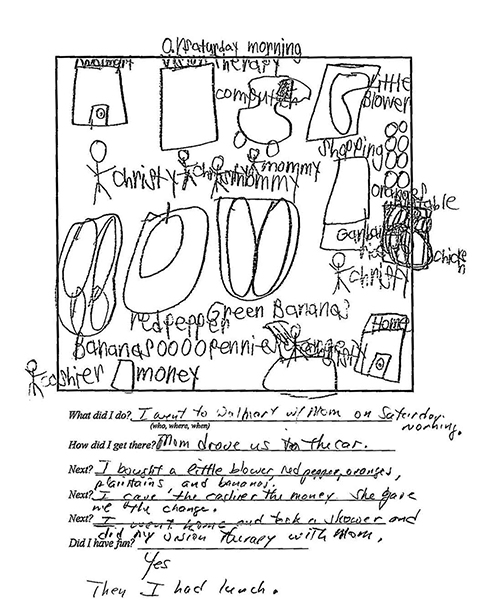 On Saturday morning
Walmart
Vision therapy
computer
Little
Blower
shopping
christy
christy
mommy
mommy
oranges
vegetable
Garbanzo
chicken
christy
red pepper
Green Bananas
Home
Bananas 0000 pennies
orange
christy
cashier
money
What did I do? I went to Walmart w/ Mom on Saturday
(who, where, when)
morning.
How did I get there? Mom drove us in the car.
Next? I bought a little blower, red pepper, oranges,
plaintains and bananas.
Next? I gave the cashier the money She gave
me the change.
Next? I went home and took a shower and
did my vision therapy with Mom.
Did I have fun?
Yes
Then I had lunch.